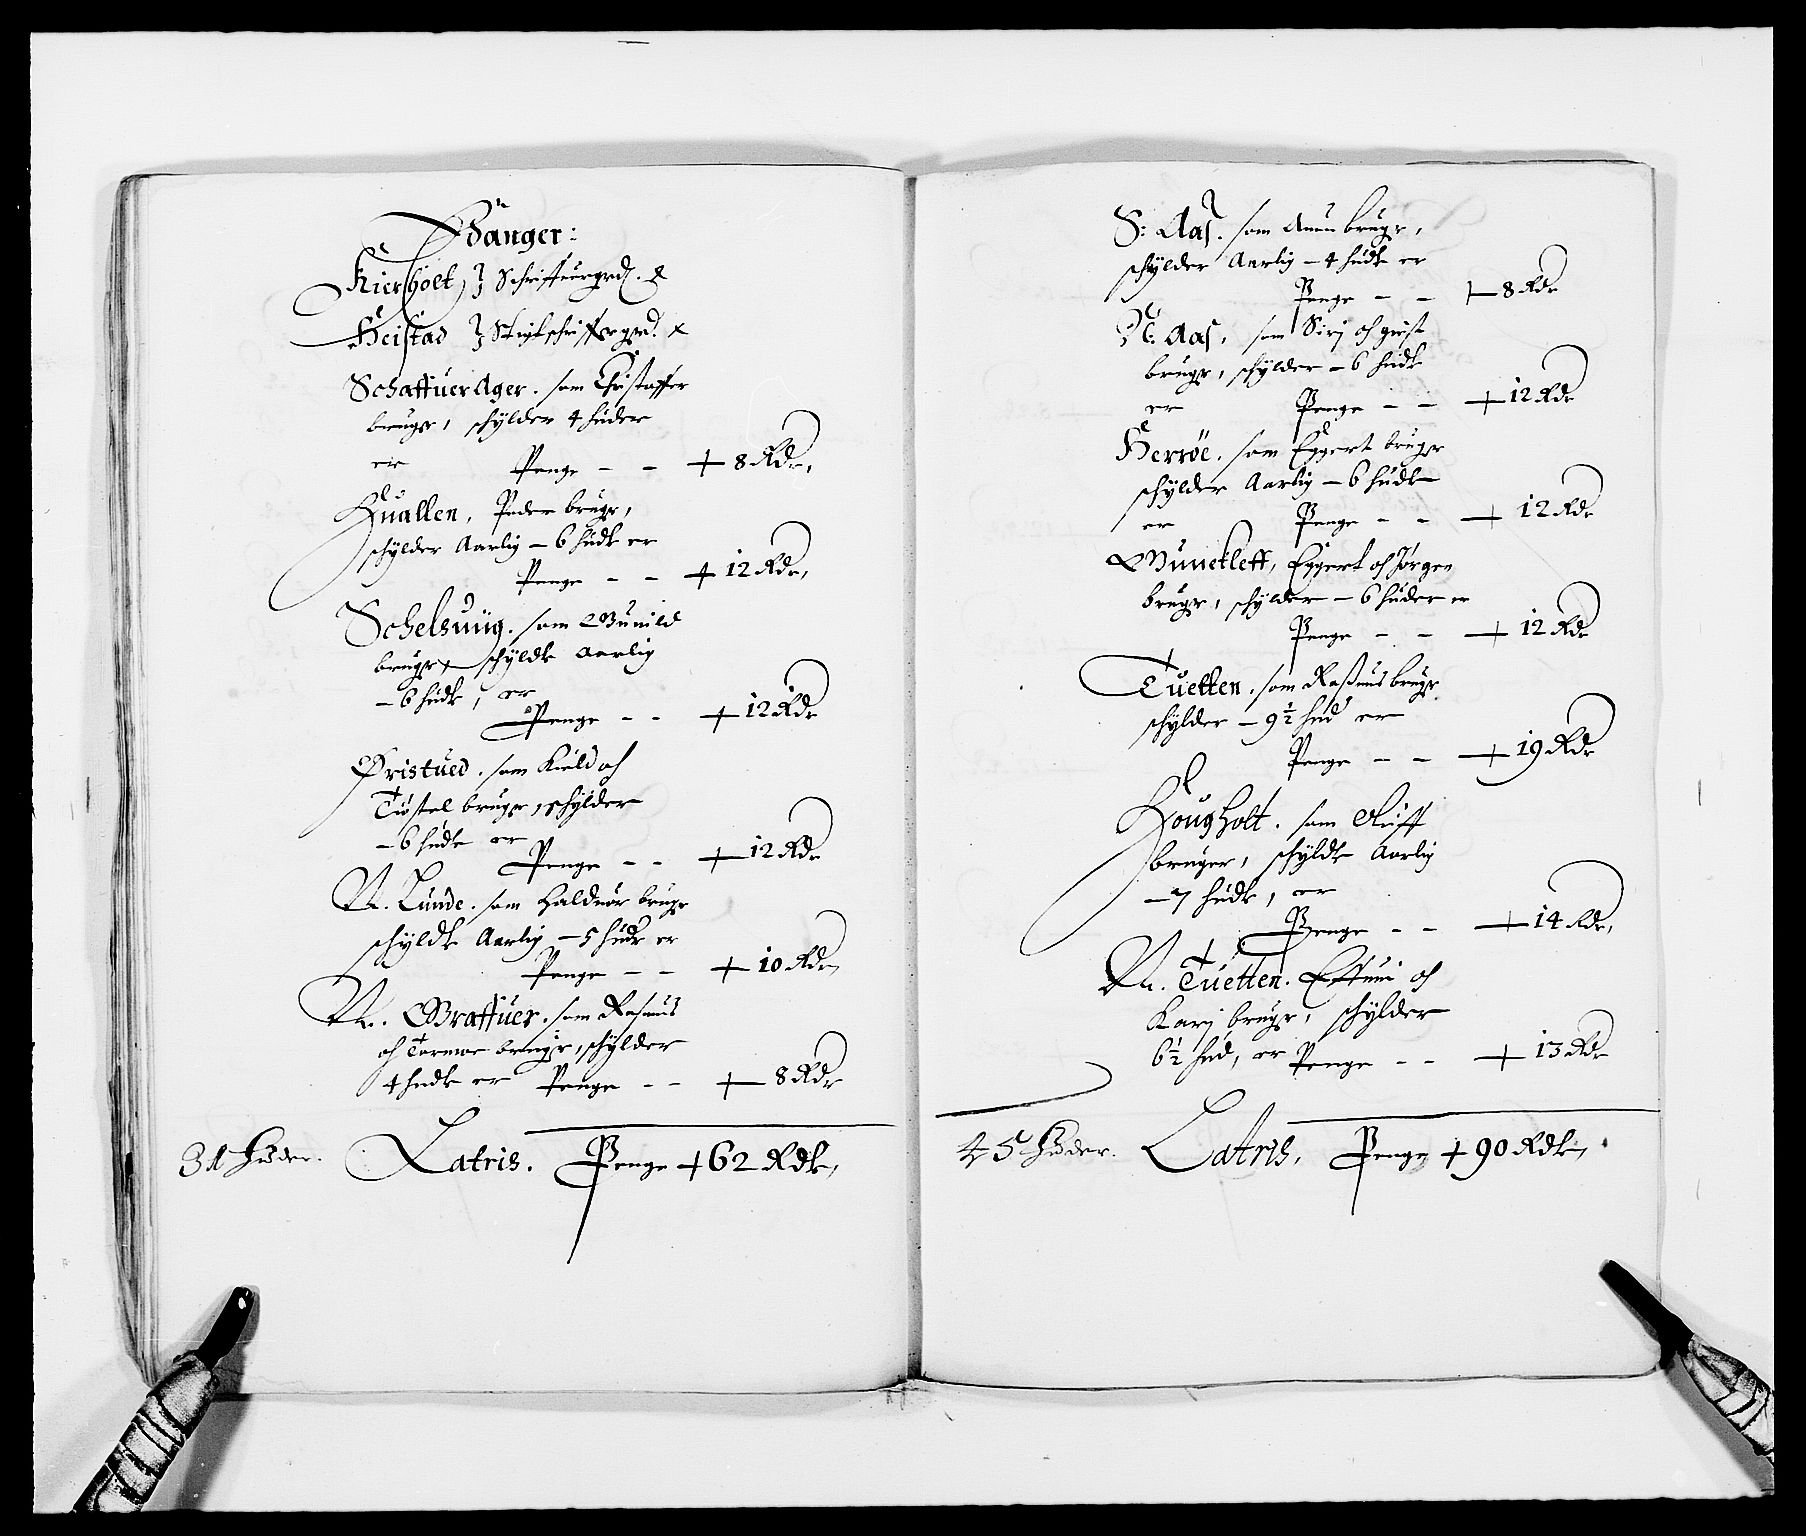 Sanger:
Kierholt, J Schriffuergrd. x
Heistad J Skrifschriffuergrd. x
Schaffuer Ager. som Christoffer
bruger, schylder 4 huder
er Penge - - + 8 Rdr,
Huallen, Peder bruger,
schylder Aarlig - 6 hudr er
Penge - - + 12 Rdr,
Schelsuiig. som Gunild
bruger, schyldr Aarlig
- 6 hudr, er
Penge - - + 12 Rdr
Øristued. som Kield och
Tostel bruger, schylder
- 6 hudr er
Penge - - + 12 Rdr
N. Lunde. som Halduor bruger
schyldr Aarlig - 5 hudr er
Penge - - + 10 Rdr,
N. Graffuer. som Rasmus
och Tormoe bruger, schylder
4 hudr er Penge - - + 8 Rdr
31 Huder. Latris. Penge + 62 Rdlr,
S: Aas. som Anun bruger,
schylder Aarlig - 4 hudr er
Penge - - + 8 Rdr
N: Aas, som Sirj och
bruger, schylder - 6 hudr
er Penge - - + 12 Rdr
Herröe. som Eggert bruger
schylder Aarlig - 6 hudr
er Penge - - + 12 Rdr
Gunetlett, Eggert och Jørgen
bruger, schylder - 6 huder er
Penge - - + 12 Rdr
Tuetten. som Rasmus bruger
schylder - 9½ hud er
Penge - - + 19 Rdr
Hougholt. som Oluff
bruger, schyldr Aarlig
- 7 hudr, er
Penge - - + 14 Rdr,
N. Tuetten. och
Karj bruger, schylder
6½ hud, er Penge - - + 13 Rdr
45 Huder. Latris, Penge + 90 Rdlr,